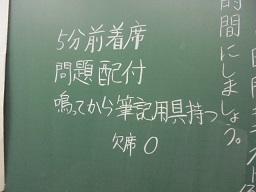 5分前着席
問題配付
鳴ってから筆記用具持つ
欠席 0
時間にしましょう。